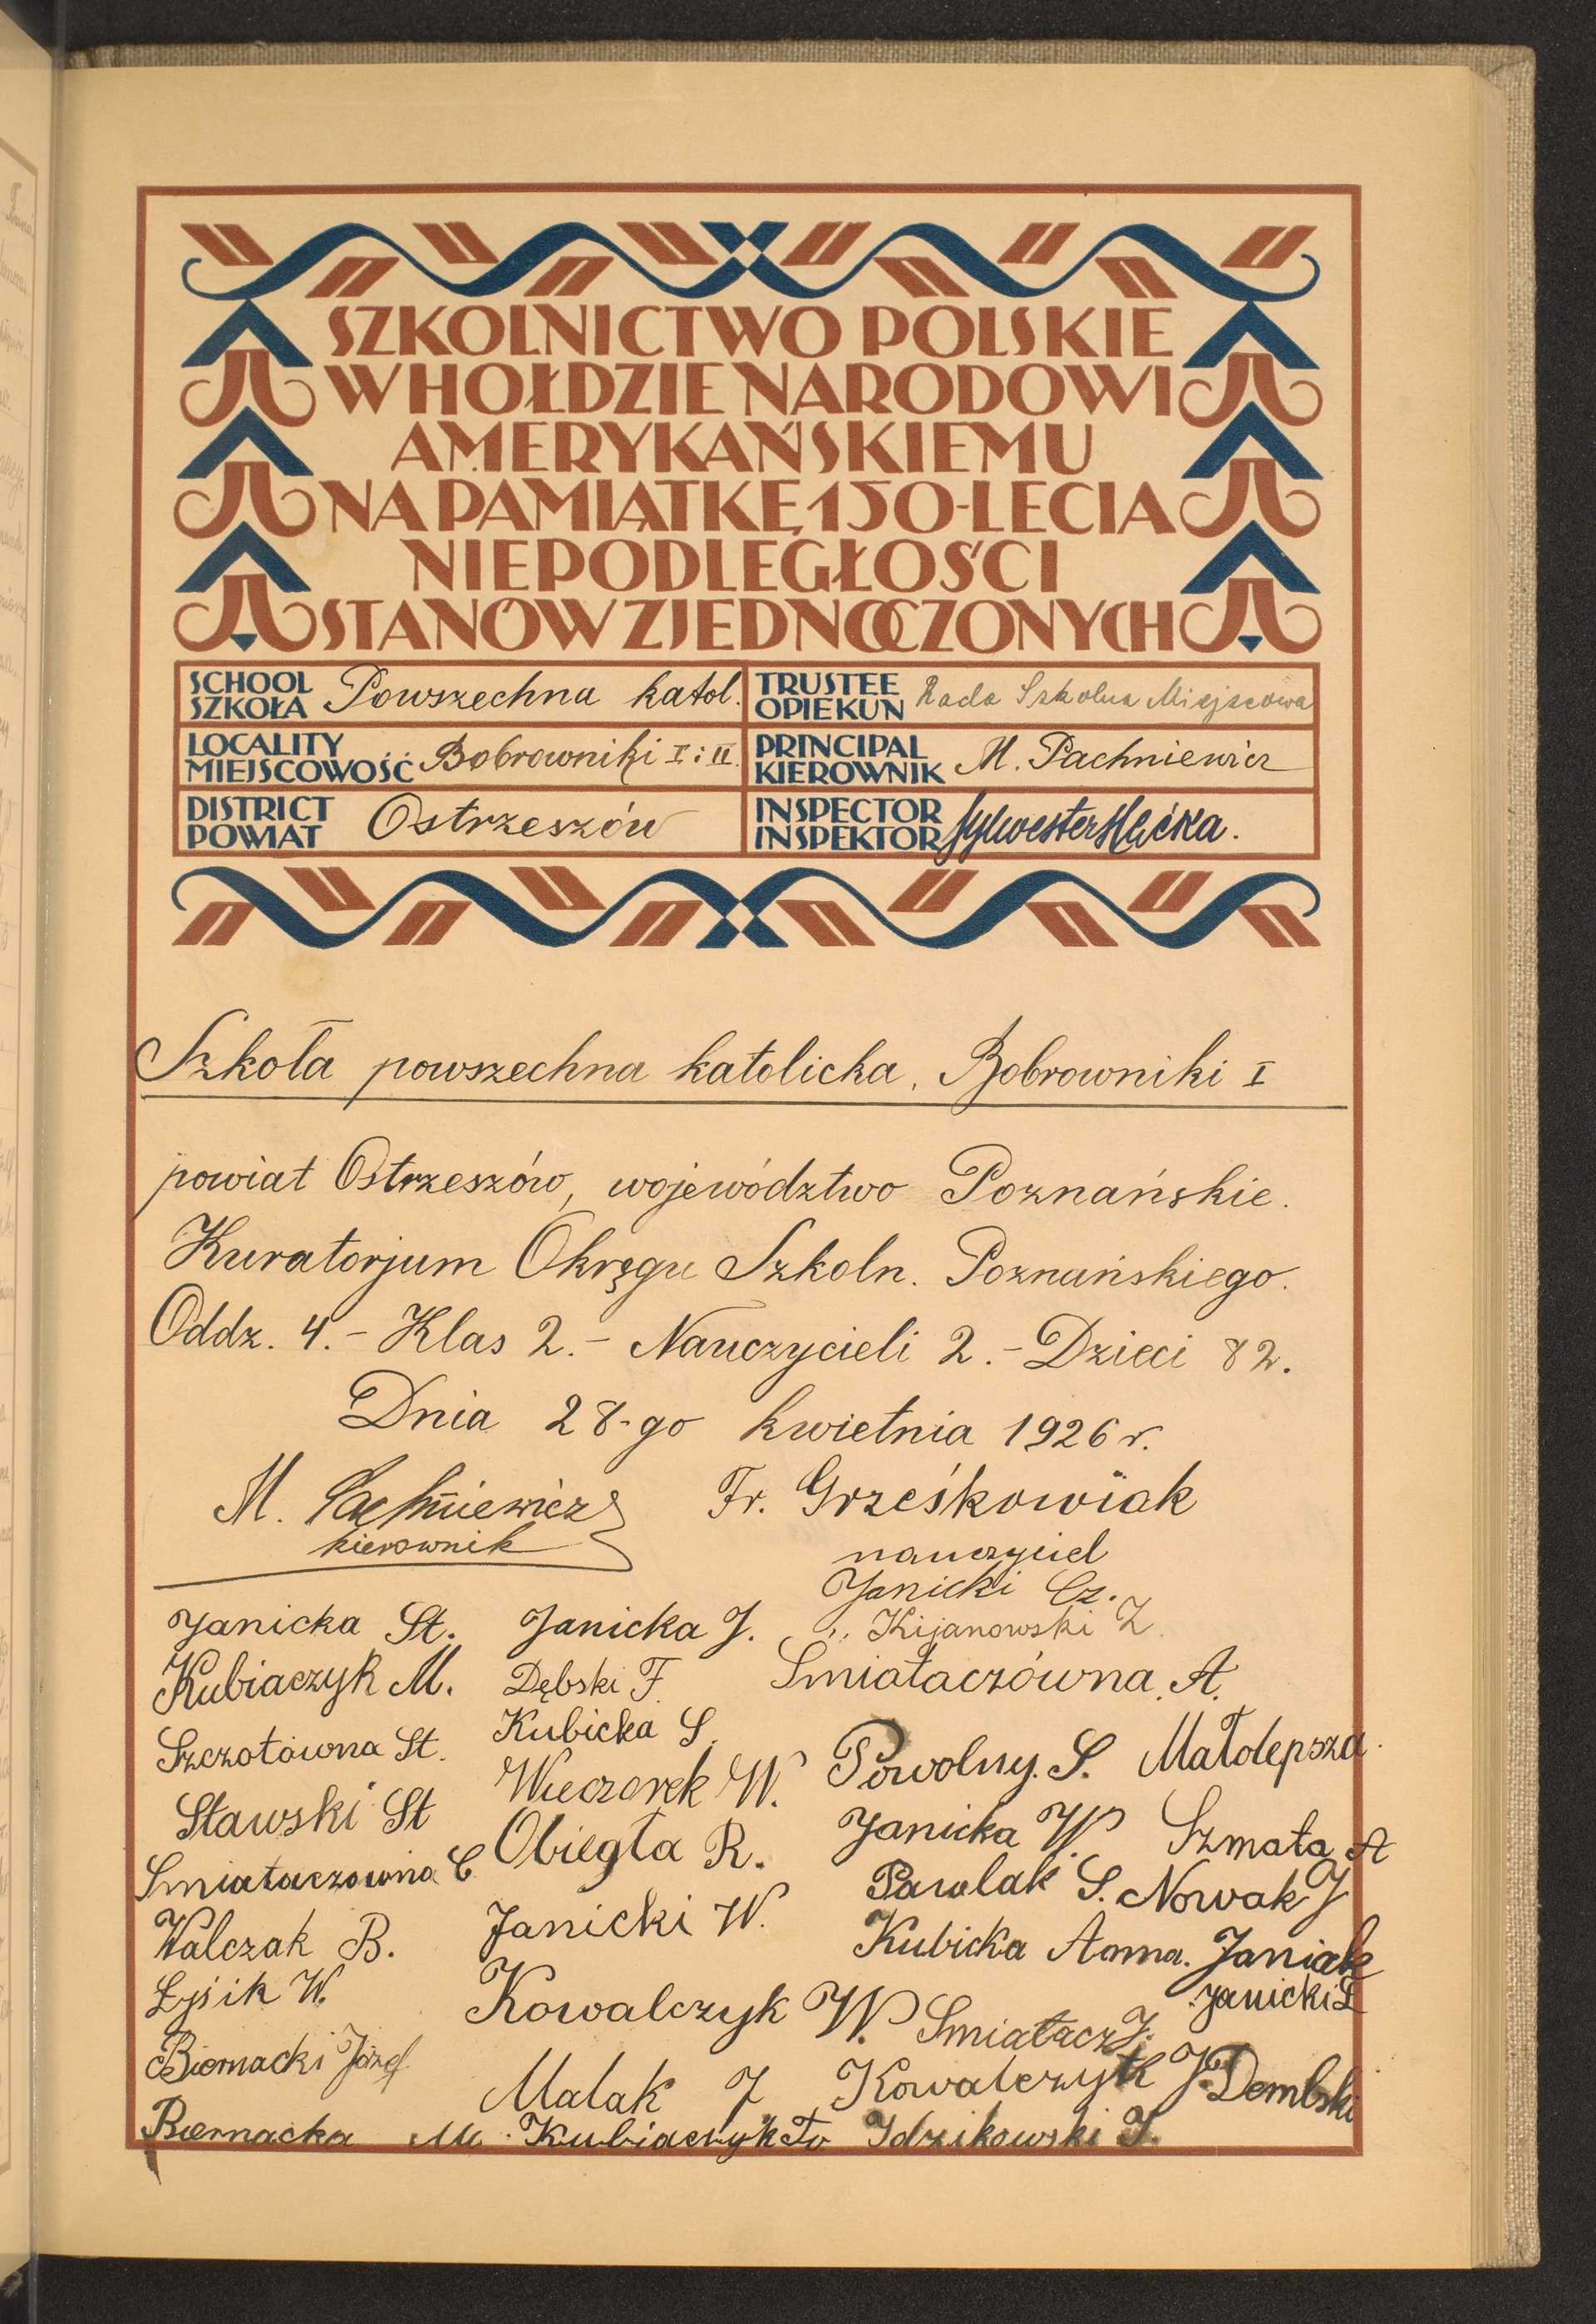 SZKOLNICTWO POLSKIE
W HOŁDZIE NARODOWI
AMERYKAŃSKIEMU
NA PAMIĄTKĘ 150-LECIA
NIEPODLEGŁOŚCI
STANÓW ZJEDNOCZONYCH
SCHOOL
SZKOŁA Powszechna katol.
TRUSTEE
OPIEKUN Rada Szkolna Miejscowa
LOCALITY
MIEJSCOWOŚĆ Bobrowniki I i II.
PRINCIPAL
KIEROWNIK M. Pachniewicz
DISTRICT
POWIAT Ostrzeszów
INSPECTOR
INSPEKTOR Sylwester
Szkoła powszechna katolicka, Bobrowniki I
powiat Ostrzeszów, województwo Poznańskie.
Kuratorjum Okręgu Szkoln. Poznańskiego.
Oddz. 4. - Klas 2. - Nauczycieli 2. - Dzieci 82.
Dnia 28-go kwietnia 1926 r.
M. Pachniewicz
kierownik
Fr. Grześkowiak
nauczyciel
Janicka St.
Kubiaczyk M.
Szczotówna St.
Stawski St
Smiataczówna C
Walczak B.
Łysik W.
Biernacki Józef
Biernacka M.
Janicka J.
Dębski F.
Kubicka S.
Wieczorek W.
Obiegła R.
Janicki W.
Kowalczyk W.
Malak J
Kubiaczyk
Janicki Cz.
Kijanowski Z.
Smiataczówna, A.
Powolny. S.
Janicka W.
Pawlak S.
Kubicka Anna.
Smiatacz J.
Kowalczyk J.
Idzikowski I.
Małolepsza.
Szmata A
Nowak J
Janiak
Janicki L
Dembski